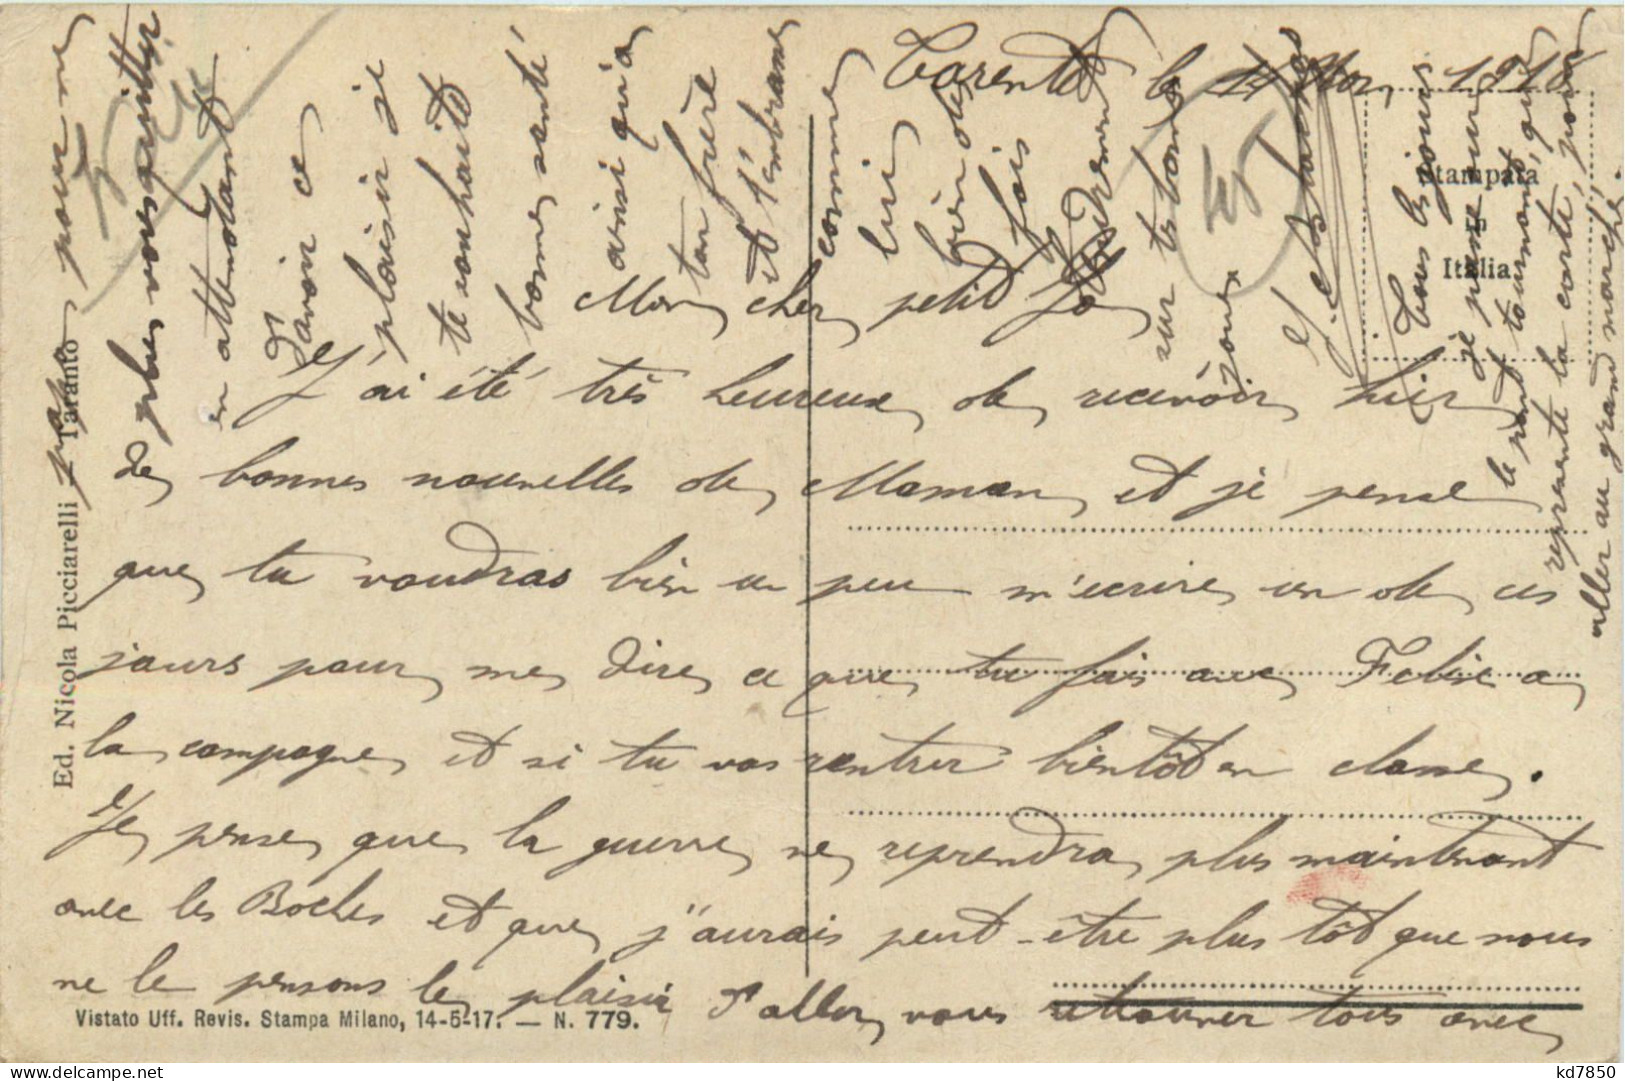 Tarente le 14 Nov. 1918
Mon cher petit Jo
J'ai été très heureux de recevoir hier
de bonnes nouvelles de Maman et je pense
que tu voudras bien un peu m'écrire un de ces
jours pour me dire ce que tu fais avec Felise a
la campagne et si tu vas rentrer bientôt en classe.
Je pense que la guerre ne reprendra plus maintenant
avec les Boches et que j'aurais peut-être plus tôt que nous
ne le pensons le plaisir d'aller vous retrouver tous avec
papa pour ne
plus vous quitter
en attendant
d'avoir ce
plaisir je
te souhaite
bonne santé
ainsi qu'a
ton frère
et t'embrasse
comme
lui
bien des
fois
tendrement
sur tes bonnes
joues
Tous les jours
je passe sur
le pont tournant que
represente la carte, pour
aller au grand marché.
Stampata
in
Italia
Ed. Nicola Picciarelli - Taranto
Vistato Uff. Revis. Stampa Milano, 14-5-17. — N. 779.
kd7850